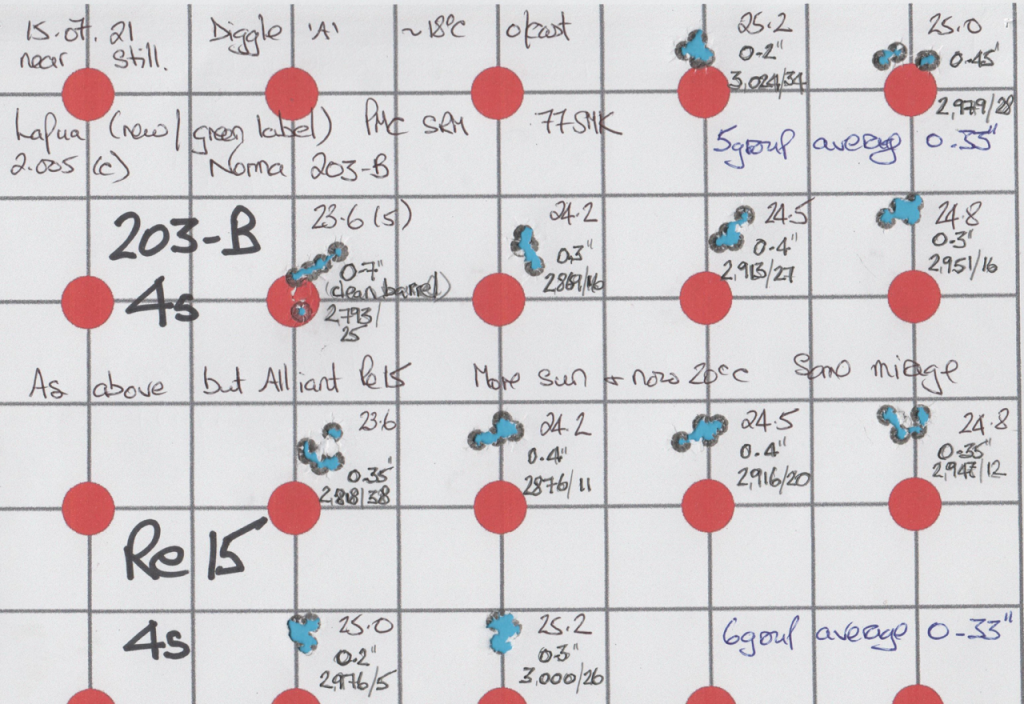 15.07.21 Diggle 'A' ~18°C o/cast
near still.
25.2
0.2"
3,024/34
25.0
0.45"
2,979/28
Lapua (new/green label) PMC SRM 77SMK
2.005 (c) Norma 203-B
5 group average 0.33"
203-B
4s
23.6 (5)
0.7"
(clean barrel)
2,793/
25
24.2
0.3"
24.5
0.4"
2,913/27
24.8
0.3"
2,951/16
As above but Alliant Re15 More sun + now 20°C Some mirage
23.6
0.35"
2,818/38
24.2
0.4"
2876/11
24.5
0.4"
2,916/20
24.8
0.35"
2,947/12
Re 15
4s
25.0
0.2"
2,976/5
25.2
0.3"
3,000/26
6 group average 0.33"